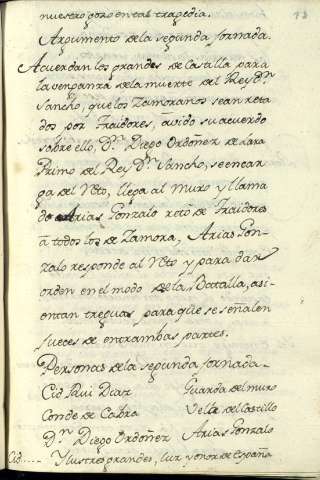 nuestro gozo en tal tragedia. 13
Argumento de la segunda Jornada.
Acuerdan los grandes de Castilla para
la venganza de la muerte del Rey Dⁿ.
Sancho, que los Zamoranos sean reta
dos por Traidores, avido su acuerdo
sobre ello, Dⁿ. Diego Ordoñez de Lara
Primo del Rey Dⁿ. Sancho, se encar
ga del Reto, llega al muro y llama
do Arias Gonzalo retó de Traidores
à todos los de Zamora, Arias Gon-
zalo responde al Reto y para dar
orden en el modo de la Batalla, asi-
entan treguas para que se señalen
Jueces de entrambas partes.
Personas de la segunda Jornada.
Cid Rui Diaz Guarda del muro
Conde de Cabra Vela del Castillo
Dⁿ. Diego Ordoñez Arias Gonzalo
Cid..... Ylustres grandes, luz y onor de España